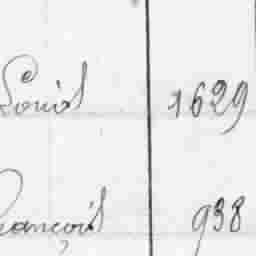 Louis 1629
rançois 938